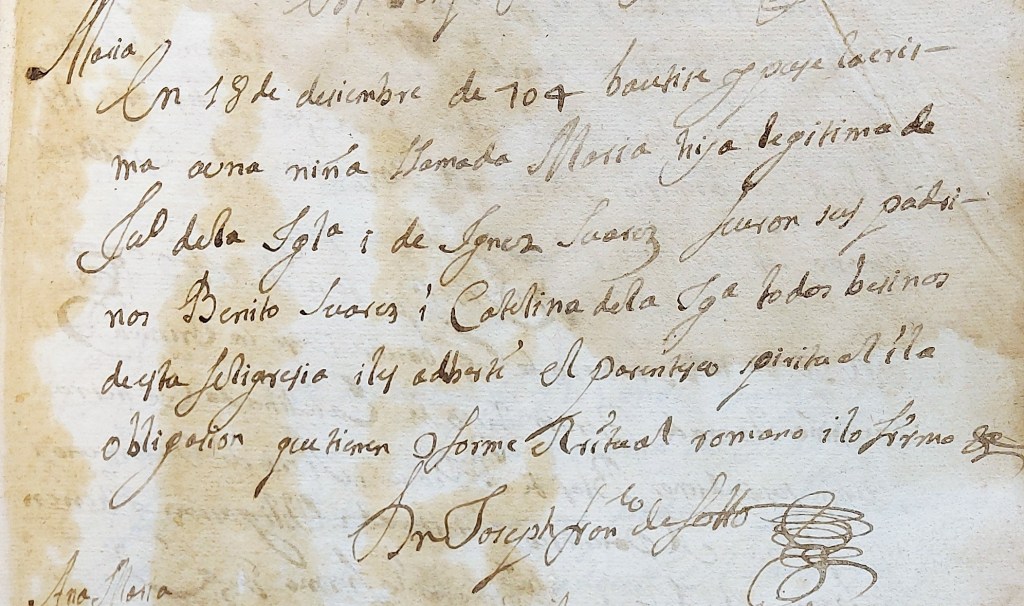 Maria
En 18 de desiembre de 704 bautise y puse la cris-
ma a una niña llamada Maria hija legitima de
de la Igla i de Ignez Suarez fueron sus padri-
nos Benito Suarez i Catelina de la Iga todos besinos
de esta feligresia i les adberti el parentesco spiritael i la
obligasion que tienen forme el ritual romano i lo firmo
Dn Joseph de Sotto
Ana Maria